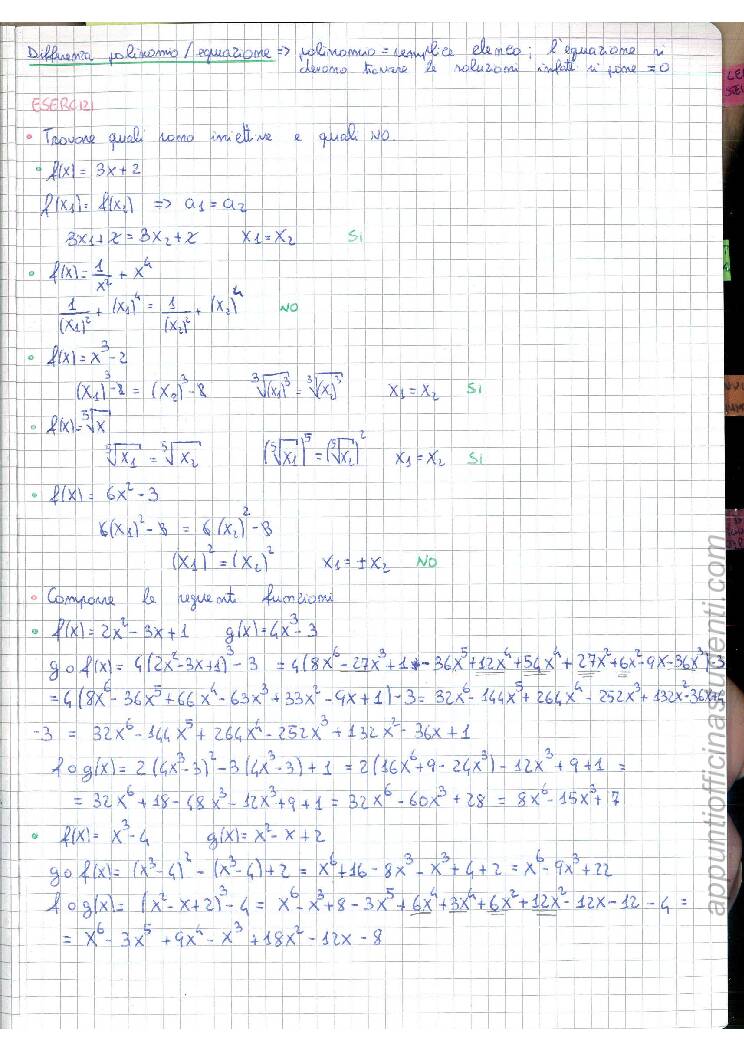 Differenza polinomio/equazione => polinomio = semplice elenco; l'equazione si
devono trovare le soluzioni infatti si pone = 0
ESERCIZI
• Trovare quali sono iniettive e quali NO.
• f(x) = 3x + 2
f(x₁) = f(x₂) => a₁ = a₂
3x₁ + 2 = 3x₂ + 2 x₁ = x₂ SI
• f(x) = 1/x² + x⁴
1/(x₁)² + (x₁)⁴ = 1/(x₂)² + (x₂)⁴ NO
• f(x) = x³ - 2
(x₁)³ - 2 = (x₂)³ - 2 ³√(x₁)³ = ³√(x₂)³ x₁ = x₂ SI
• f(x) = ⁵√x
⁵√x₁ = ⁵√x₂ (⁵√x₁)⁵ = (⁵√x₂)² x₁ = x₂ SI
• f(x) = 6x² - 3
6(x₁)² - 3 = 6(x₂)² - 3
(x₁)² = (x₂)² x₁ = ± x₂ NO
• Comporre le seguenti funzioni
• f(x) = 2x² - 3x + 1 g(x) = 4x³ - 3
g o f(x) = 4(2x² - 3x + 1)³ - 3 = 4(8x⁶ - 27x³ + 1 - 36x⁵ + 12x⁴ + 54x⁴ + 27x² + 6x² - 9x - 36x³) - 3
= 4(8x⁶ - 36x⁵ + 66x⁴ - 63x³ + 33x² - 9x + 1) - 3 = 32x⁶ - 144x⁵ + 264x⁴ - 252x³ + 132x² - 36x + 4
- 3 = 32x⁶ - 144x⁵ + 264x⁴ - 252x³ + 132x² - 36x + 1
f o g(x) = 2(4x³ - 3)² - 3(4x³ - 3) + 1 = 2(16x⁶ + 9 - 24x³) - 12x³ + 9 + 1 =
= 32x⁶ + 18 - 48x³ - 12x³ + 9 + 1 = 32x⁶ - 60x³ + 28 = 8x⁶ - 15x³ + 7
• f(x) = x³ - 4 g(x) = x² - x + 2
g o f(x) = (x³ - 4)² - (x³ - 4) + 2 = x⁶ + 16 - 8x³ - x³ + 4 + 2 = x⁶ - 9x³ + 22
f o g(x) = (x² - x + 2)³ - 4 = x⁶ - x³ + 8 - 3x⁵ + 6x⁴ + 3x⁴ + 6x² + 12x² - 12x - 12 - 4 =
= x⁶ - 3x⁵ + 9x⁴ - x³ + 18x² - 12x - 8
appuntiofficinastudenti.com